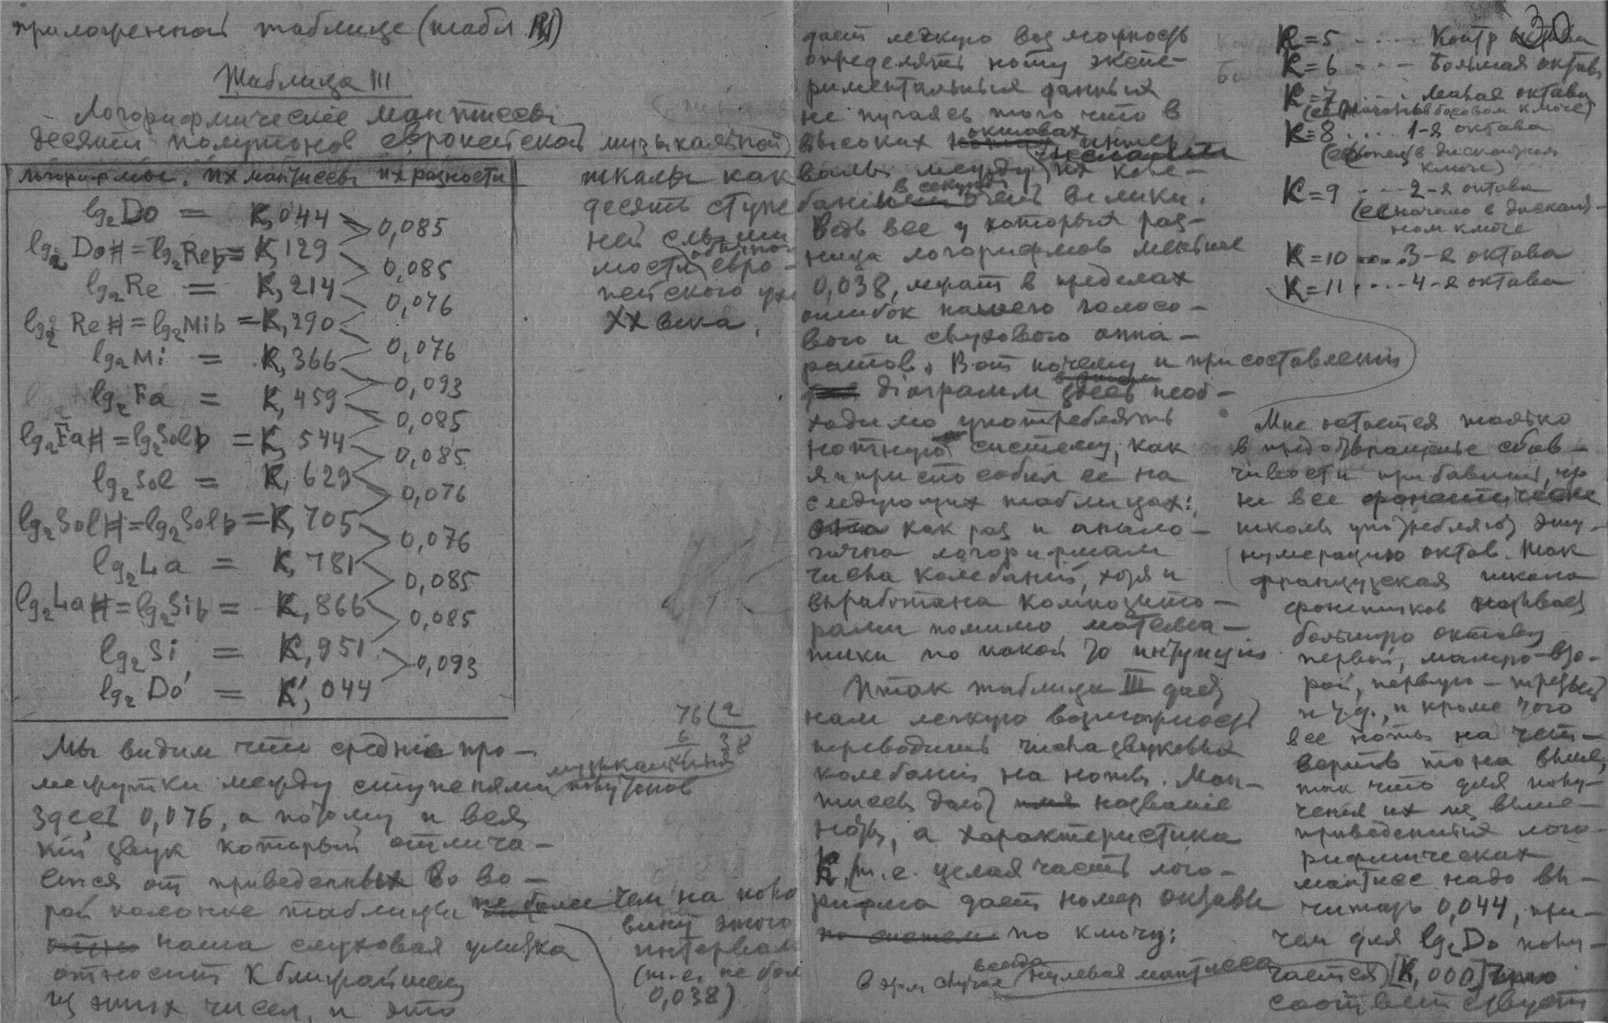 приложенной таблице (табл III)
Таблица III
Логорифмическіе мантиссы
десяти полутонов европейской музыкальной
шкалы как
десять ступе
ней слыши
мости обычного
евро-
пейского уха
XX века.
логорифмы. их мантиссы их разности
lg₂ Do = K,044
0,085
lg₂ Do# = lg₂ Reb = K,129
0,085
lg₂ Re = K,214
0,076
lg₂ Re# = lg₂ Mib = K,290
0,076
lg₂ Mi = K,366
0,093
lg₂ Fa = K,459
0,085
lg₂ Fa# = lg₂ Solb = K,544
0,085
lg₂ Sol = K,629
0,076
lg₂ Sol# = lg₂ Solb = K,705
0,076
lg₂ La = K,781
0,085
lg₂ La# = lg₂ Sib = K,866
0,085
lg₂ Si = K,951
0,093
lg₂ Do' = K',044
76 2
6 38
Мы видим что средніе про-
межутки между ступенями музыкальных полутонов
здесь 0,076, а потому и вся
кій звук который отлича-
ется от приведенных во вто-
рой колонке таблицы не более чем на поло
вину этого
интервала
(т.е. не бол
0,038)
наша слуховая улитка
относит к ближайшему
из этих чисел, и это
30
дает легкую возможность
определять ноту экспе-
риментальных данных
не пугаясь того что в
высоких октавах интер
валы между числами их коле-
баній в секунду очень велики.
Ведь все у которых раз-
ница логорифмов меньше
0,038, лежат в пределах
ошибок нашего голосо-
вого и слухового аппа-
ратов. Вот почему и при составлении
діограмм здесь необ-
ходимо употреблять
нотную систему, как
я приспособил ее на
следующих таблицах:
как раз и анало-
гична логорифмам
числа колебаний, хотя и
выработана композито-
рами помимо матема-
тики по какой то интуиции
Итак таблица III дает
нам легкую возможность
переводить числа звуковых
колебаній на ноты. Ман-
тиссы дают названіе
ноты, а характеристика
K, т.е. целая часть лого-
рифма дает номер октавы
по ключу:
в этом случае всегда нулевая мантисса
K=5 .... Контр октава
K=6 ... Большая октава
K=7 .... малая октава
(ее начало в басовом ключе)
K=8 .... 1-я октава
(ее конец в дискантном
ключе)
K=9 .... 2-я октава
(ее начало в дискант-
ном ключе
K=10 .... 3-я октава
K=11 .... 4-я октава
Мне остается только
в предотвращение сбив-
чивости прибавить, что
не все фонетические
школы употребляют эту
нумерацию октав. Так
французская школа
фонетиков называет
большую октаву
первой, малую-вто-
рой, первую - третьей
и т.д., и кроме того
все ноты на чет-
верть тона выше,
так что для полу-
чения их из выше-
приведенных лого-
рифмических
мантисс надо вы-
читать 0,044, при-
чем для lg₂ Do полу-
чается [K,000] что
соответствует